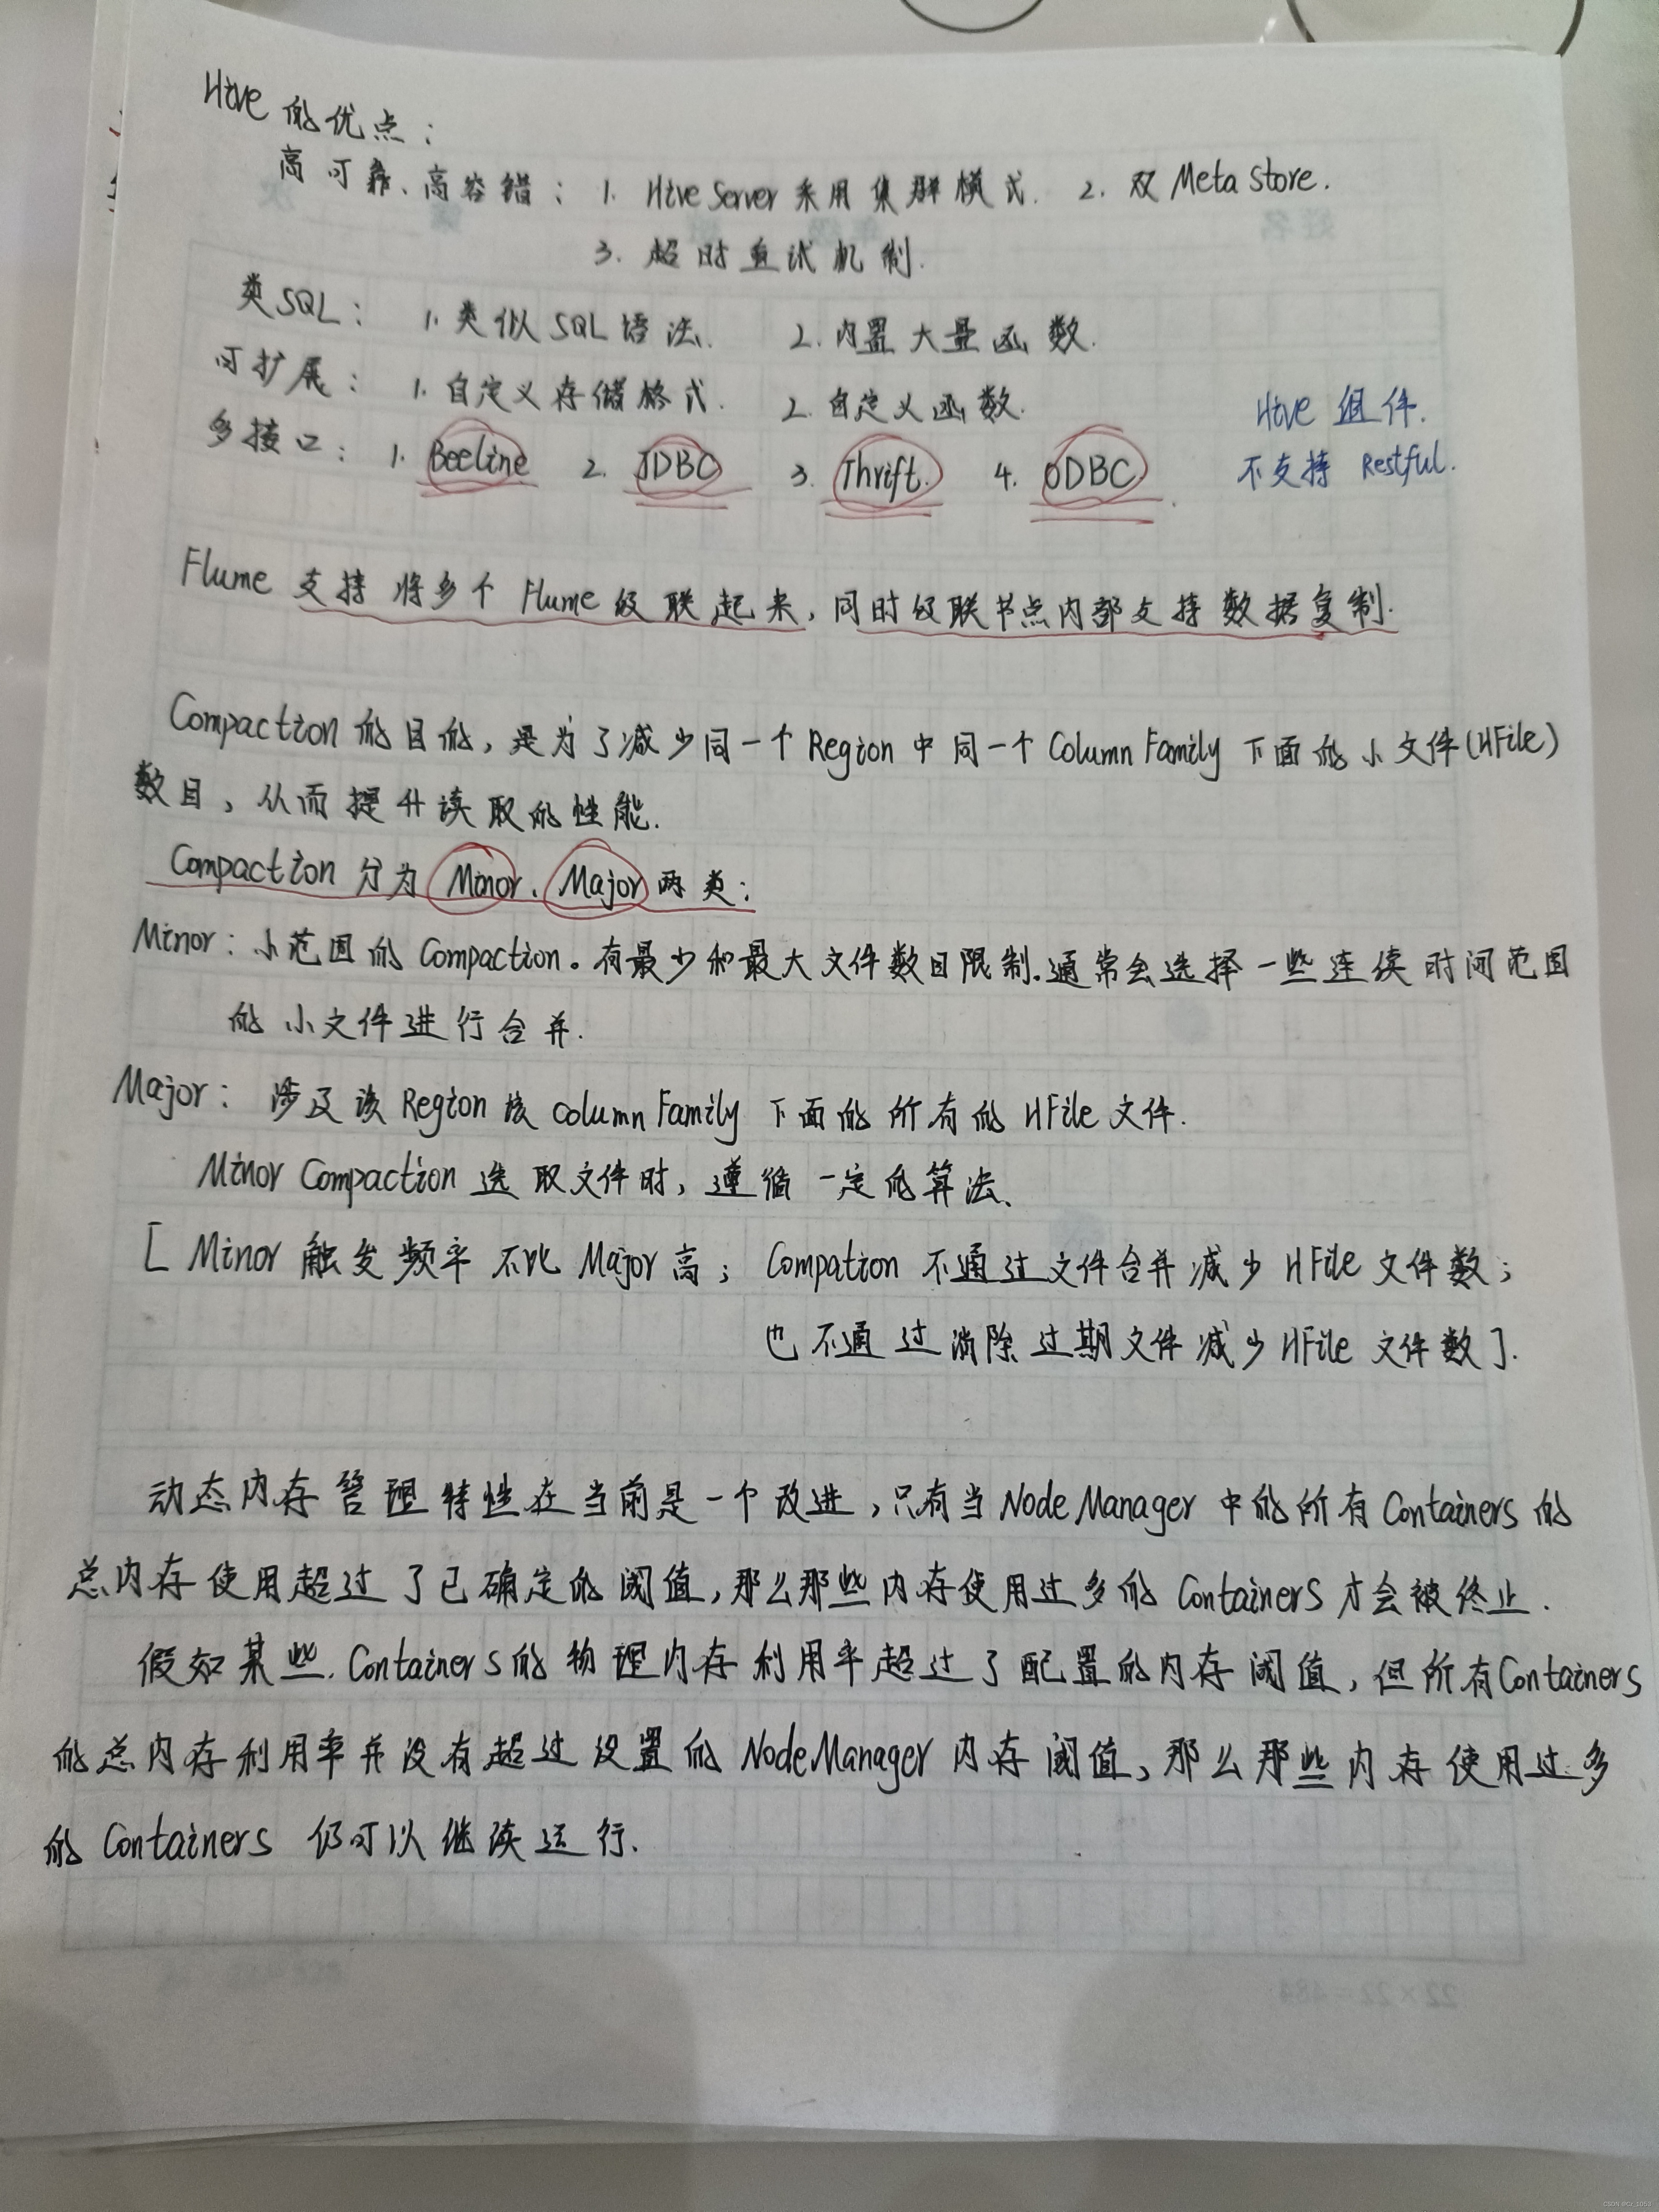 Hive 的优点：
高可靠、高容错： 1. Hive Server 采用集群模式. 2. 双 Meta Store.
3. 超时重试机制.
类SQL： 1. 类似SQL语法. 2. 内置大量函数.
可扩展： 1. 自定义存储格式. 2. 自定义函数.
Hive 组件.
多接口： 1. Beeline 2. JDBC 3. Thrift. 4. ODBC.
不支持 Restful.
Flume 支持将多个 Flume 级联起来，同时级联节点内部支持数据复制.
Compaction 的目的，是为了减少同一个 Region 中同一个 Column Family 下面的小文件(HFile)
数目，从而提升读取的性能.
Compaction 分为 Minor、Major 两类：
Minor：小范围的 Compaction。有最少和最大文件数目限制.通常会选择一些连续时间范围
的小文件进行合并.
Major： 涉及该 Region 该 Column Family 下面的所有的 HFile 文件.
Minor Compaction 选取文件时，遵循一定的算法、
[ Minor 触发频率不比 Major 高； Compation 不通过文件合并减少 HFile 文件数；
也不通过消除过期文件减少 HFile 文件数].
动态内存管理特性在当前是一个改进，只有当 Node Manager 中的所有 Containers 的
总内存使用超过了已确定的阈值，那么那些内存使用过多的 Containers 才会被终止.
假如某些 Containers 的物理内存利用率超过了配置的内存阈值，但所有 Containers
的总内存利用率并没有超过设置的 NodeManager 内存阈值，那么那些内存使用过多
的 Containers 仍可以继续运行.
22×22=484